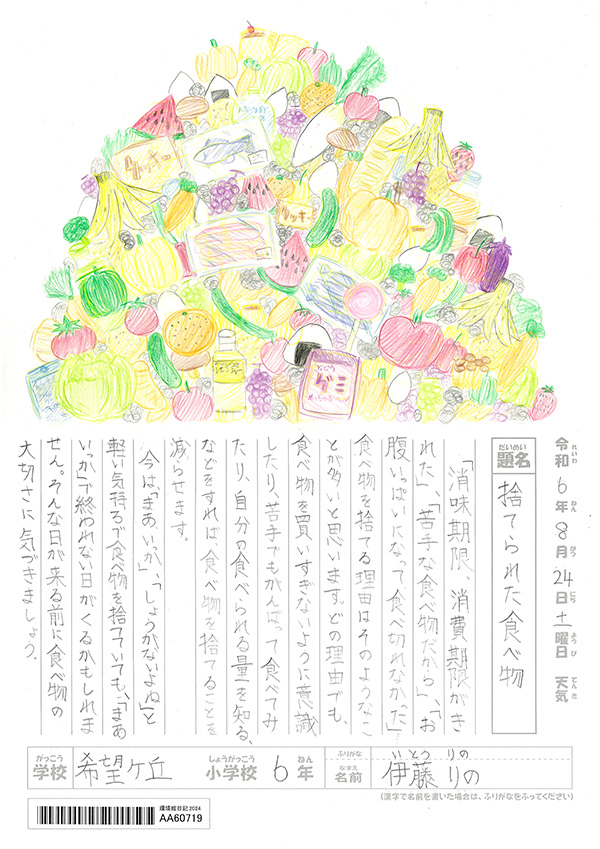 クッキー
クッキー
グミ
令和6年8月24日土曜日 天気
れいわ ねん がつ にち ようび てんき
だいめい
題名
捨てられた食べ物
「消味期限、消費期限がき
れた」、「苦手な食べ物だから」、「お
腹いっぱいになって食べ切れなかった」
食べ物を捨てる理由はそのようなこ
とが多いと思います。どの理由でも、
食べ物を買いすぎないように意識
したり、苦手でもがんばって食べてみ
たり、自分の食べられる量を知る、
などをすれば、食べ物を捨てることを
減らせます。
今は、「まあ、いっか」、「しょうがないよね」と
軽い気持ちで食べ物を捨てていても、「まあ
いっか」で終われない日がくるかもしれま
せん。そんな日が来る前に食べ物の
大切さに気づきましょう。
がっこう しょうがっこう ねん
学校 希望ケ丘 小学校 6年
ふりがな いとう りの
なまえ
名前 伊藤 りの
(漢字で名前を書いた場合は、ふりがなをふってください)
環境絵日記2024
AA60719